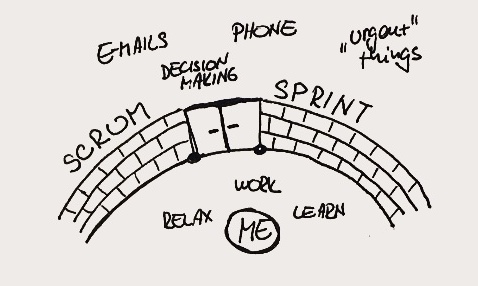 EMAILS
PHONE
"urgent"
things
DECISION
MAKING
SCRUM
SPRINT
WORK
RELAX
LEARN
ME